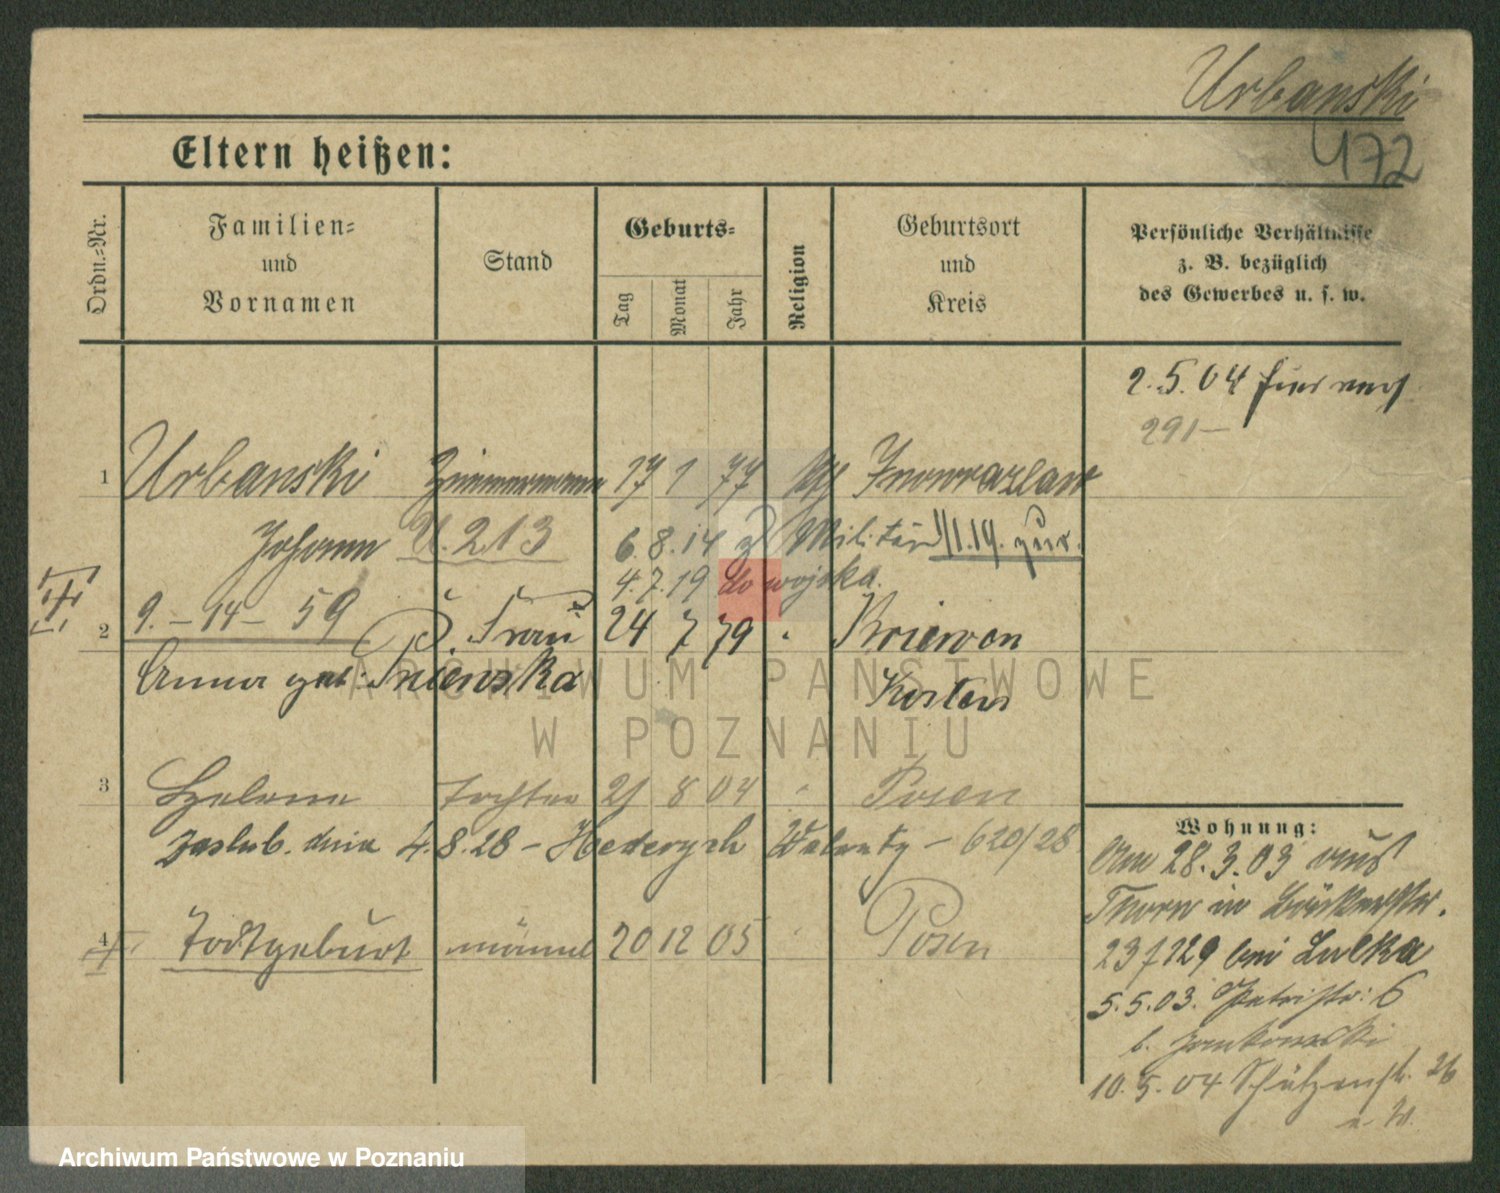 Urbanski
472
Eltern heißen:
Ordn.-Nr.
Familien-
und
Vornamen
Stand
Geburts-
Tag
Monat
Jahr
Religion
Geburtsort
und
Kreis
Persönliche Verhältnisse
z. B. bezüglich
des Gewerbes u. s. w.
2.5.04
291-
1 Urbanski Zimmermann 17 1 77 Inowrazlaw
Johann U. 213 6.8.14 z. Militär 1/1.19. zur.
4.7.19 do wojska.
9.-14-59
2 Frau 24 7 79 Kriewen
Anna geb. Kosten
3 Helene Tochter 21 8 04 Posen
zaślub. dnia 4.8.28 - Walenty - 620/28
4 Todtgeburt männl 20 12 05 Posen
Wohnung:
Am 28.3.03 aus
Thorn in
bei Lulka
5.5.03. Petristr: 6
b. Jankowski
10.5.04 Schützenstr. 26
ARCHIWUM PAŃSTWOWE
W POZNANIU
Archiwum Państwowe w Poznaniu